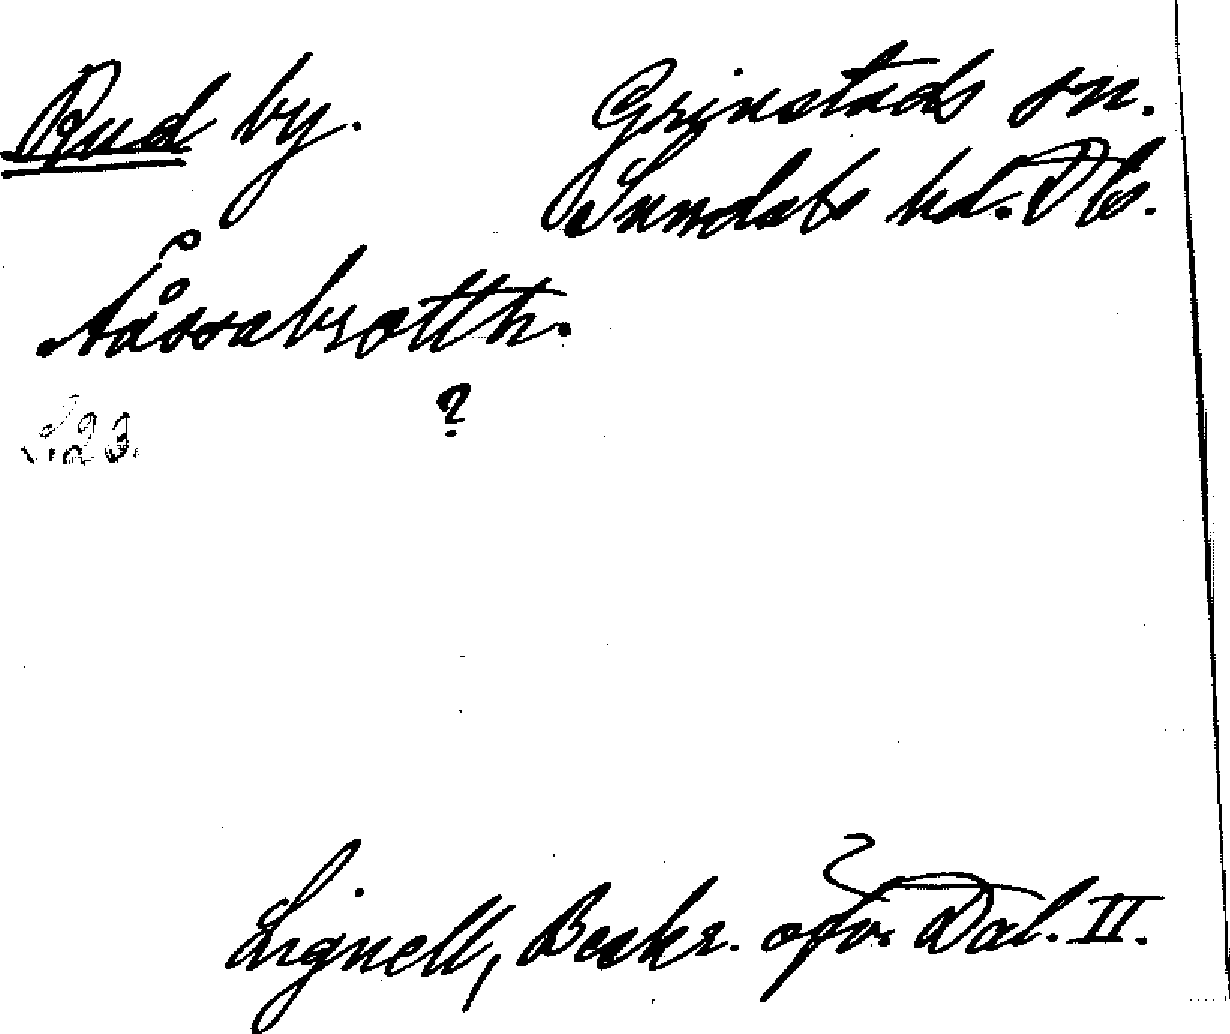 Rud by. Grinstads sn.
Sundals hd. Dls.
Ååssabrotth.
?
S. 23.
Lignell, Beskr. öfv. Dal. II.